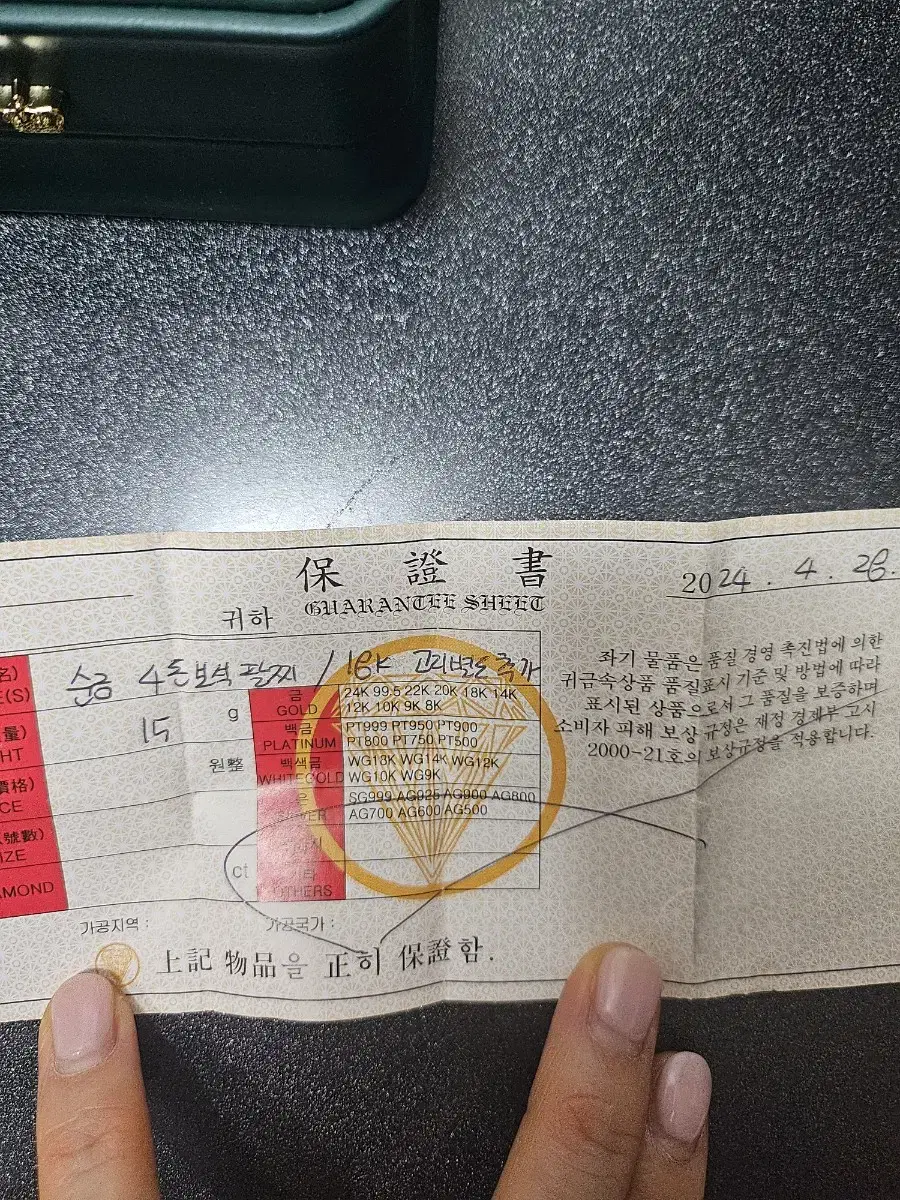 保證書
GUARANTEE SHEET
2024. 4. 28.
귀하
순금 4돈 보석 팔찌 / 18K 고리별도 추가
15 g
금 GOLD
24K 99.5 22K 20K 18K 14K
12K 10K 9K 8K
백금 PLATINUM
PT999 PT950 PT900
PT800 PT750 PT500
原整
백색금 WHITEGOLD
WG18K WG14K WG12K
WG10K WG9K
SG999 AG925 AG900 AG800
AG700 AG600 AG500
ct
기타
OTHERS
名)
E(S)
量)
HT
價格)
CE
號數)
IZE
AMOND
좌기 물품은 품질 경영 촉진법에 의한
귀금속상품 품질표시 기준 및 방법에 따라
표시된 상품으로서 그 품질을 보증하며
소비자 피해 보상 규정은 재정 경제부 고시
2000-21호의 보상규정을 적용합니다.
가공지역 :
가공국가 :
上記 物品을 正히 保證함.